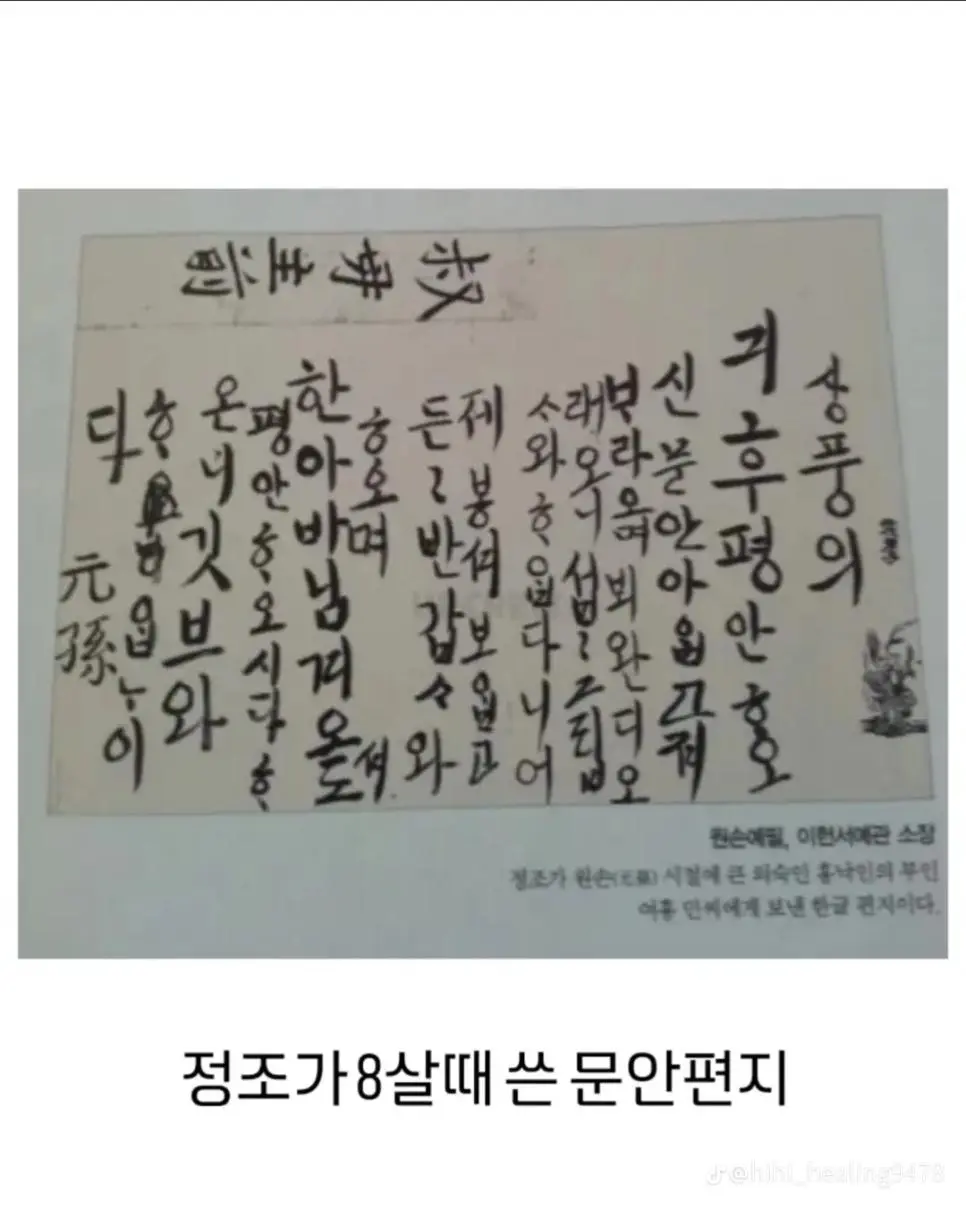 叔母主前
상풍의
긔후평안ᄒᆞ오
신문안아ᄋᆞᆸ고져
ᄇᆞ라오며뵈완디오
래오니섭〻그립
ᄉᆞ와ᄒᆞᄋᆞᆸ다니어
제봉셔보ᄋᆞᆸ고
든〻반갑ᄉᆞ와
ᄒᆞ오며
한아바님겨오셔도
평안ᄒᆞ오시다ᄒᆞ
온니깃브와
ᄒᆞᄋᆞᆸᄂᆞ이
다
元孫
원손예필, 이헌서예관 소장
정조가 원손(元孫) 시절에 큰 외숙인 홍낙인의 부인
여흥 민씨에게 보낸 한글 편지이다.
정조가 8살때 쓴 문안편지
@hihi_healing9478